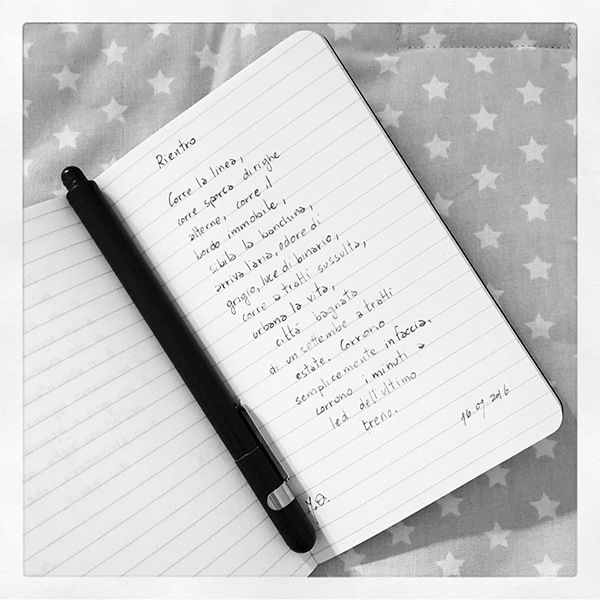 Rientro
Corre la linea,
corre sporca di righe
alterne, corre il
bordo immobile,
sibila la banchina,
arriva l'aria, odore di
grigio, luce di binario,
corre a tratti sussulta,
urbana la vita,
città bagnata
di un settembre a tratti
estate. Corrono
semplicemente in faccia,
corrono i minuti a
led dell'ultimo
treno.
16.09.2016